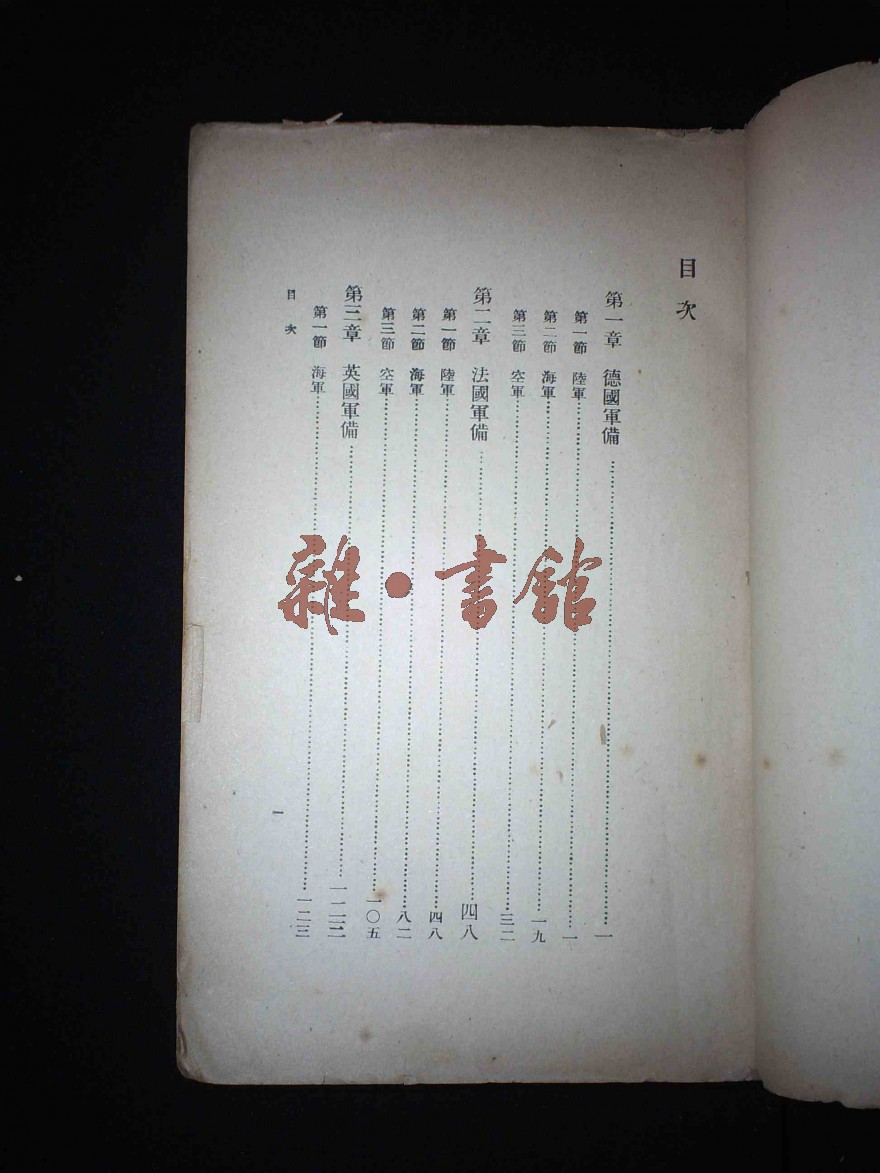 目次
第一章 德國軍備……一
第一節 陸軍……一
第二節 海軍……一九
第三節 空軍……三二
第二章 法國軍備……四八
第一節 陸軍……四八
第二節 海軍……八二
第三節 空軍……一〇五
第三章 英國軍備……一二三
第一節 海軍……一二三
目次
一
雜·書館